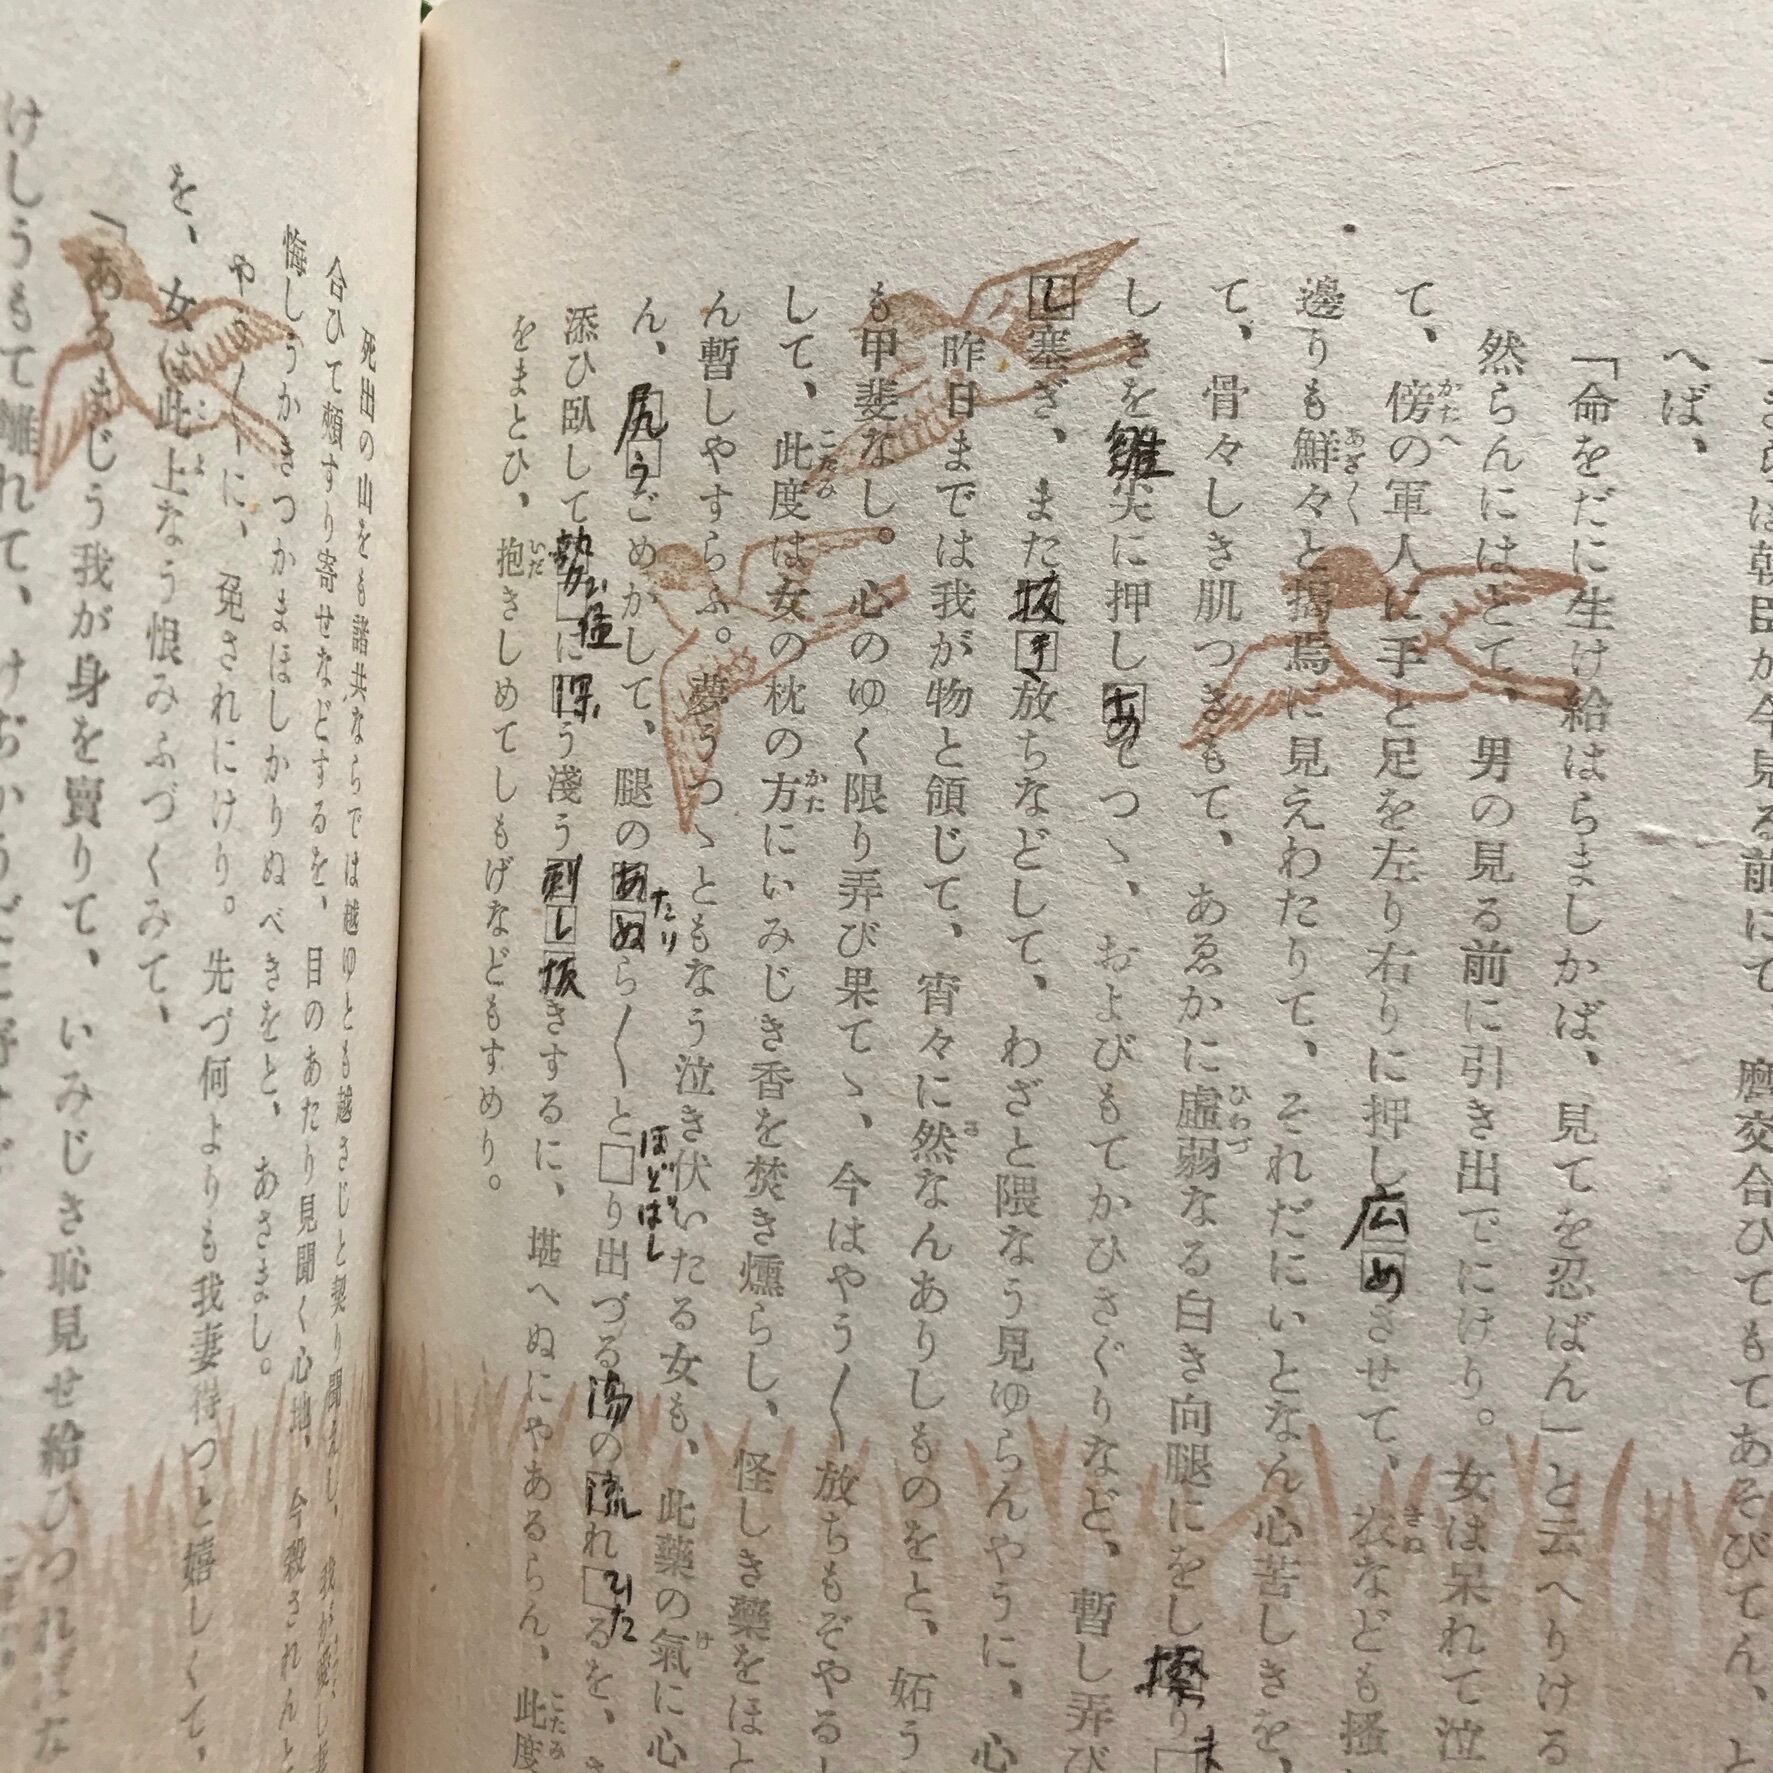 さらば朝臣が今見る前にて、麿交合ひてもてあそびてん、と
へば、
「命をだに生け給はらましかば、見てを忍ばん」と云へりける
然らんにはとて、男の見る前に引き出でにけり。女は呆れて泣
て、傍の軍人に手と足を左り右りに押し広めさせて、衣なども掻
邊りも鮮々と掲焉に見えわたりて、それだにいとなん心苦しきを、
て、骨々しき肌つきもて、あゑかに虚弱なる白き向腿にをし
しきを尖に押しあてつゝ、およびもてかひさぐりなど、暫し弄び
し塞ぎ、また抜き放ちなどして、わざと隈なう見ゆらんやうに、心
昨日までは我が物と領じて、宵々に然なんありしものをと、妬う
も甲斐なし。心のゆく限り弄び果てゝ、今はやう〳〵放ちもぞやるし
して、此度は女の枕の方にいみじき香を焚き燻らし、怪しき藥をほと
ん暫しやすらふ。夢うつゝともなう泣き伏いたる女も、此藥の氣に心
ん、尻うごめかして、腿のあたりぬら〳〵とほどばしり出づる湯の流れいたるを、
添ひ臥してに深う淺う刺し抜きするに、堪へぬにやあるらん、此度
をまとひ、抱きしめてしもげなどもすめり。
死出の山をも諸共ならでは越ゆとも越さじと契り聞えし、我が
合ひて頬すり寄せなどするを、目のあたり見聞く心地、今殺されんと
悔しうかきつかまほしかりぬべきをと、あさまし。
や〳〵に、免されにけり。先づ何よりも我妻得つと嬉しくて、
を、女は此上なう恨みふづくみて、
「あるまじう我が身を賣りて、いみじき恥見せ給ひつれば
けしうもて離れて、